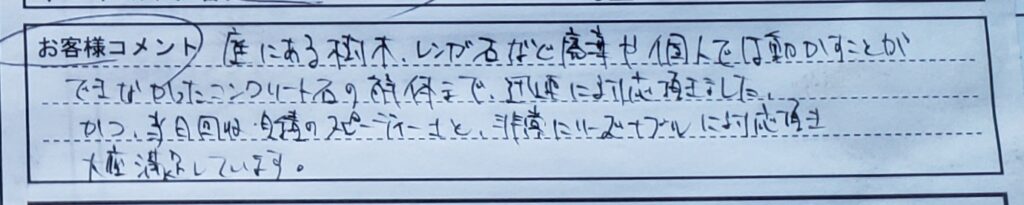 お客様コメント 庭にある樹木、レンガ石など廃棄や個人では動かすことが
できなかったコンクリート石の解体まで、迅速に対応頂きました。
かつ、当日回収、見積のスピーディーさと、非常にリーズナブルに対応頂き
大変満足しています。